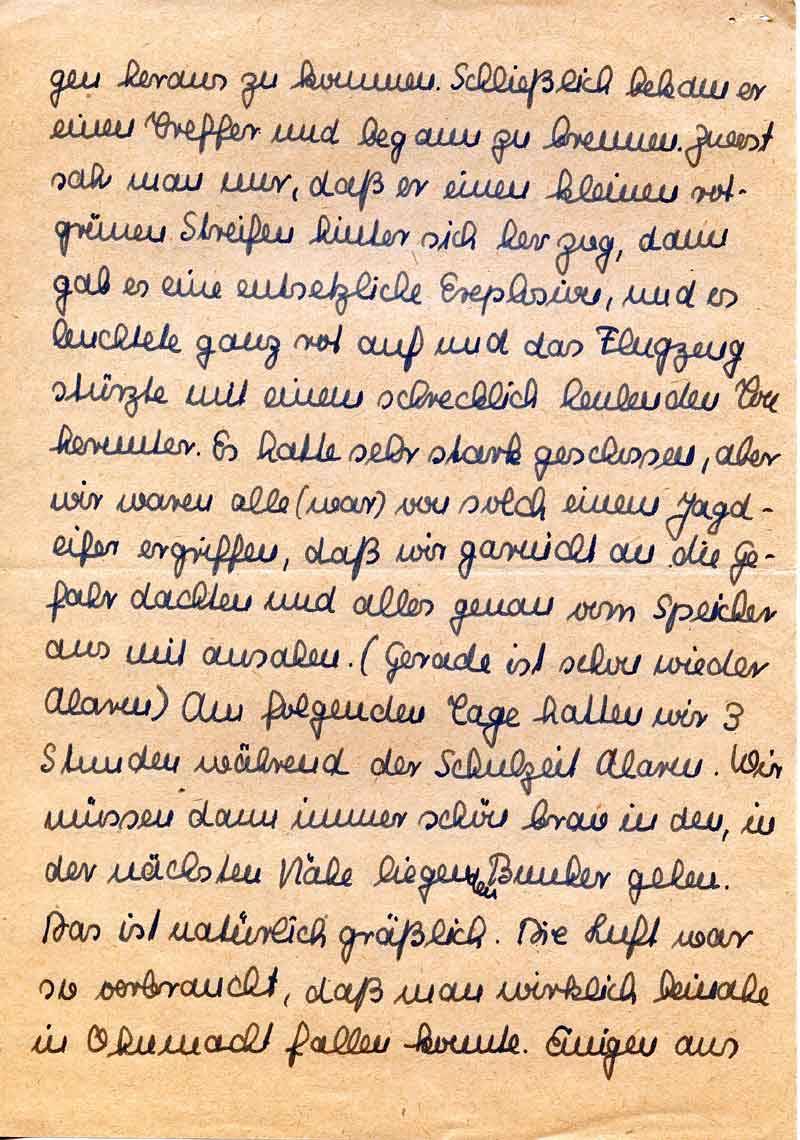 gen heraus zu kommen. Schließlich bekam er
einen Treffer und begann zu brennen. Zuerst
sah man nur, daß er einen kleinen rot-
grünen Streifen hinter sich her zug, dann
gab es eine entsetzliche Exeplosion, und es
leuchtete ganz rot auf und das Flugzeug
stürzte mit einem schrecklich heulenden Ton
herunter. Es hatte sehr stark geschossen, aber
wir waren alle (war) von solch einem Jagd-
eifer ergriffen, daß wir garnicht an die Ge-
fahr dachten und alles genau vom Speicher
aus mit ansahen. (Gerade ist schon wieder
Alarm) Am folgenden Tage hatten wir 3
Stunden während der Schulzeit Alarm. Wir
müssen dann immer schön brav in den, in
der nächsten Nähe liegenden Bunker gehen.
Das ist natürlich gräßlich. Die Luft war
so verbraucht, daß man wirklich beinahe
in Ohnmacht fallen konnte. Einigen aus